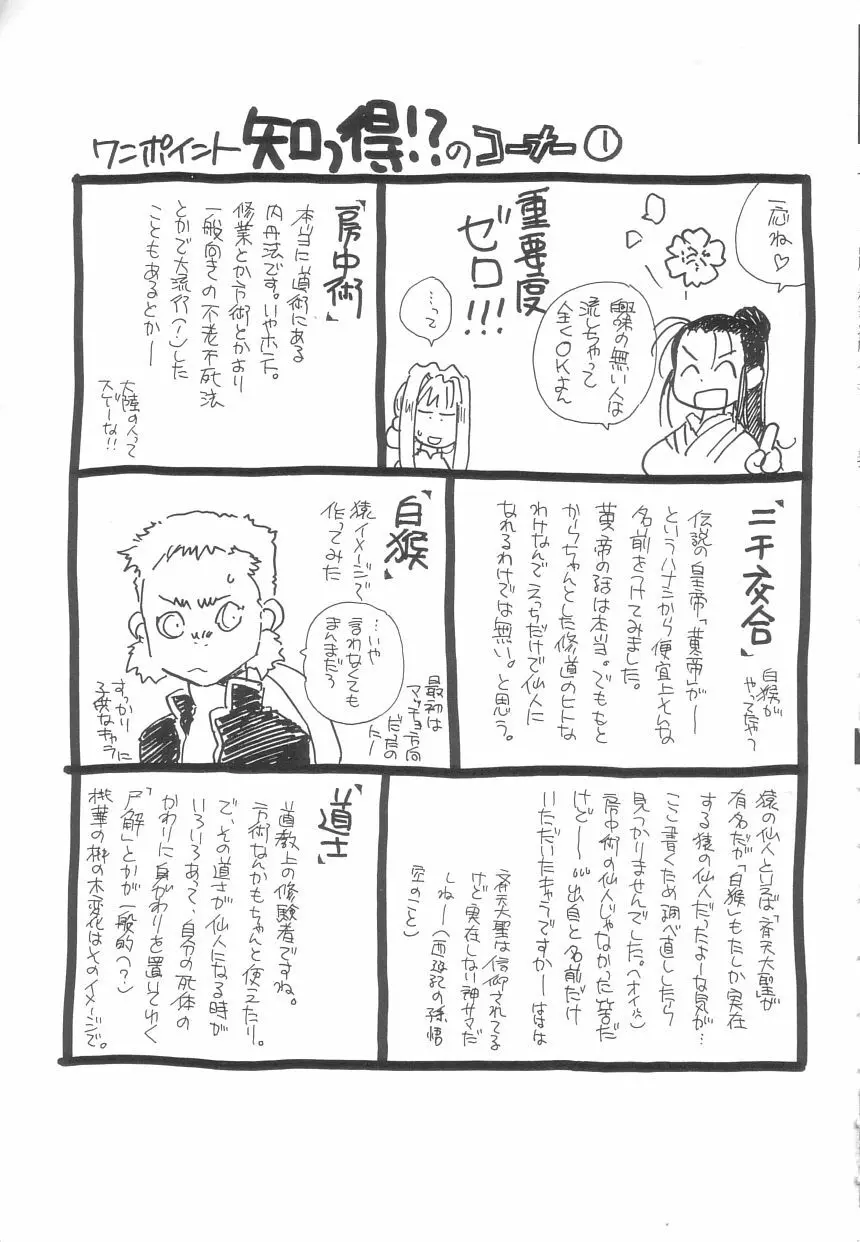 ワンポイント知っ得!?のコーナー①
一応ね♡
重要度
ゼロ!!!
興味の無い人は
流しちゃって
全くOKよん
…って
「房中術」
本当に道術にある
内丹法です。いやホント。
修業とか方術とかより
一般向きの不老不死法
とかで大流行(?)した
こともあるとかー
大陸の人って
スゲーな!!
「二千交合」
白猴が
やってたやつ
伝説の皇帝「黄帝」が―
というハナシから便宜上そんな
名前をつけてみました。
黄帝の話は本当。でももと
からちゃんとした修道のヒトな
わけなんでえっちだけで仙人に
なれるわけでは無い。と思う。
「白猴」
猿イメージで
作ってみた
…いや
言わなくても
まんまだろ
最初は
マッチョ方向
だったの
にー
すっかり
子供なキャラに
猿の仙人といえば「斉天大聖」が
有名だが「白猴」もたしか実在
する猿の仙人だったよーな気が…
ここ書くため調べ直ししたら
見っかりませんでした。(オイ)
房中術の仙人じゃなかった筈だ
けどー…出自と名前だけ
いただいたキャラですかーははは
斉天大聖は信仰されてる
けど実在しない神サマだ
しねー(西遊記の孫悟
空のこと)
「道士」
道教上の修験者ですね。
方術なんかもちゃんと使えたり。
で、その道士が仙人になる時が
いろいろあって、自分の死体の
かわりに身がわりを置いてゆく
「尸解」とかが一般的(?)
桃華の樹の木変化はそのイメージで。